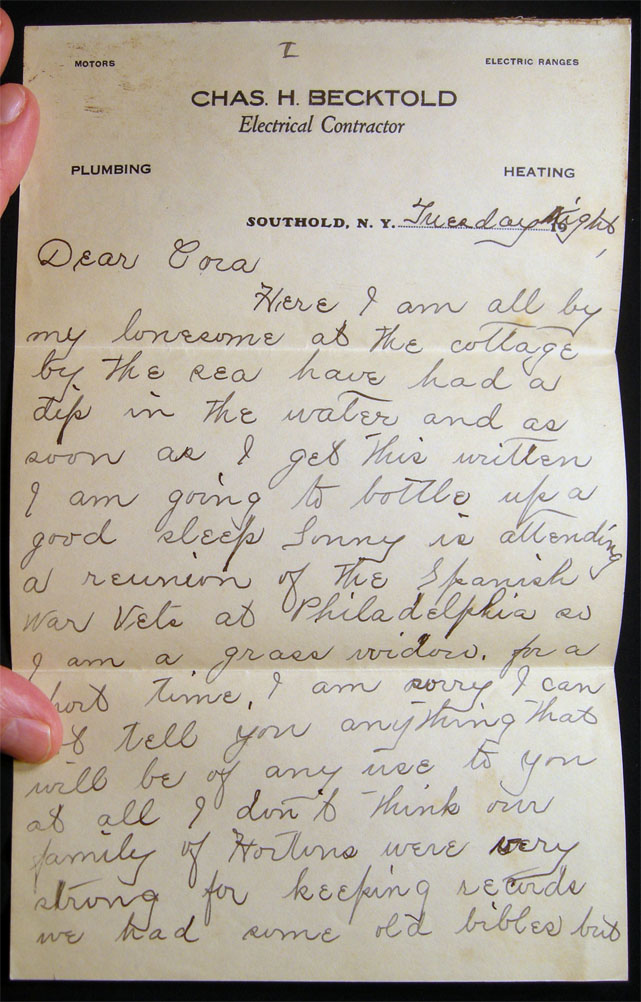 I
MOTORS ELECTRIC RANGES
CHAS. H. BECKTOLD
Electrical Contractor
PLUMBING HEATING
SOUTHOLD, N. Y. Tuesday Night 19
Dear Cora
Here I am all by
my lonesome at the cottage
by the sea have had a
dip in the water and as
soon as I get this written
I am going to bottle up a
good sleep Sonny is attending
a reunion of the Spanish
War Vets at Philadelphia so
I am a grass widow. for a
hort time, I am sorry I can
t tell you anything that
will be of any use to you
at all I don't think our
family of Hortons were very
strong for keeping records
we had some old bibles but